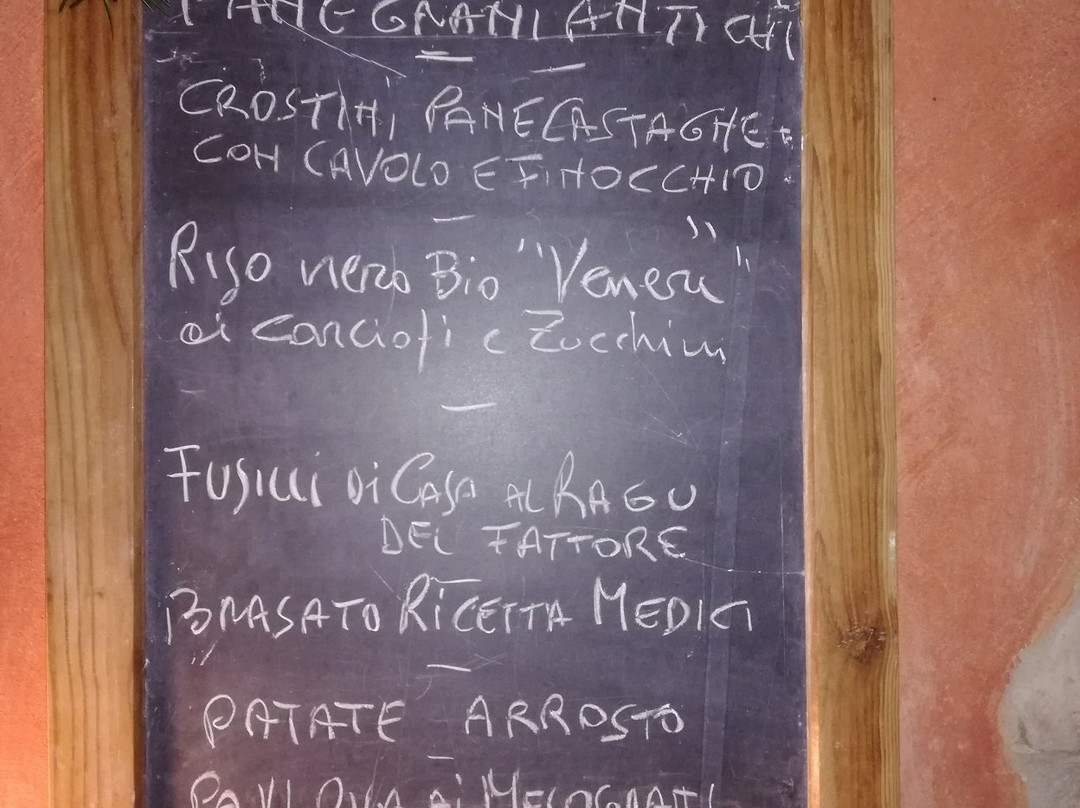 PANE GRANI ANTICHI
CROSTINI PANE CASTAGNE
CON CAVOLO E FINOCCHIO
Riso nero Bio "Venere"
ai carciofi e Zucchini
FUSILLI Di CASA AL RAGU
DEL FATTORE
BRASATO RICETTA MEDICI
PATATE ARROSTO
PAVLOVA Ai MELOGRANI